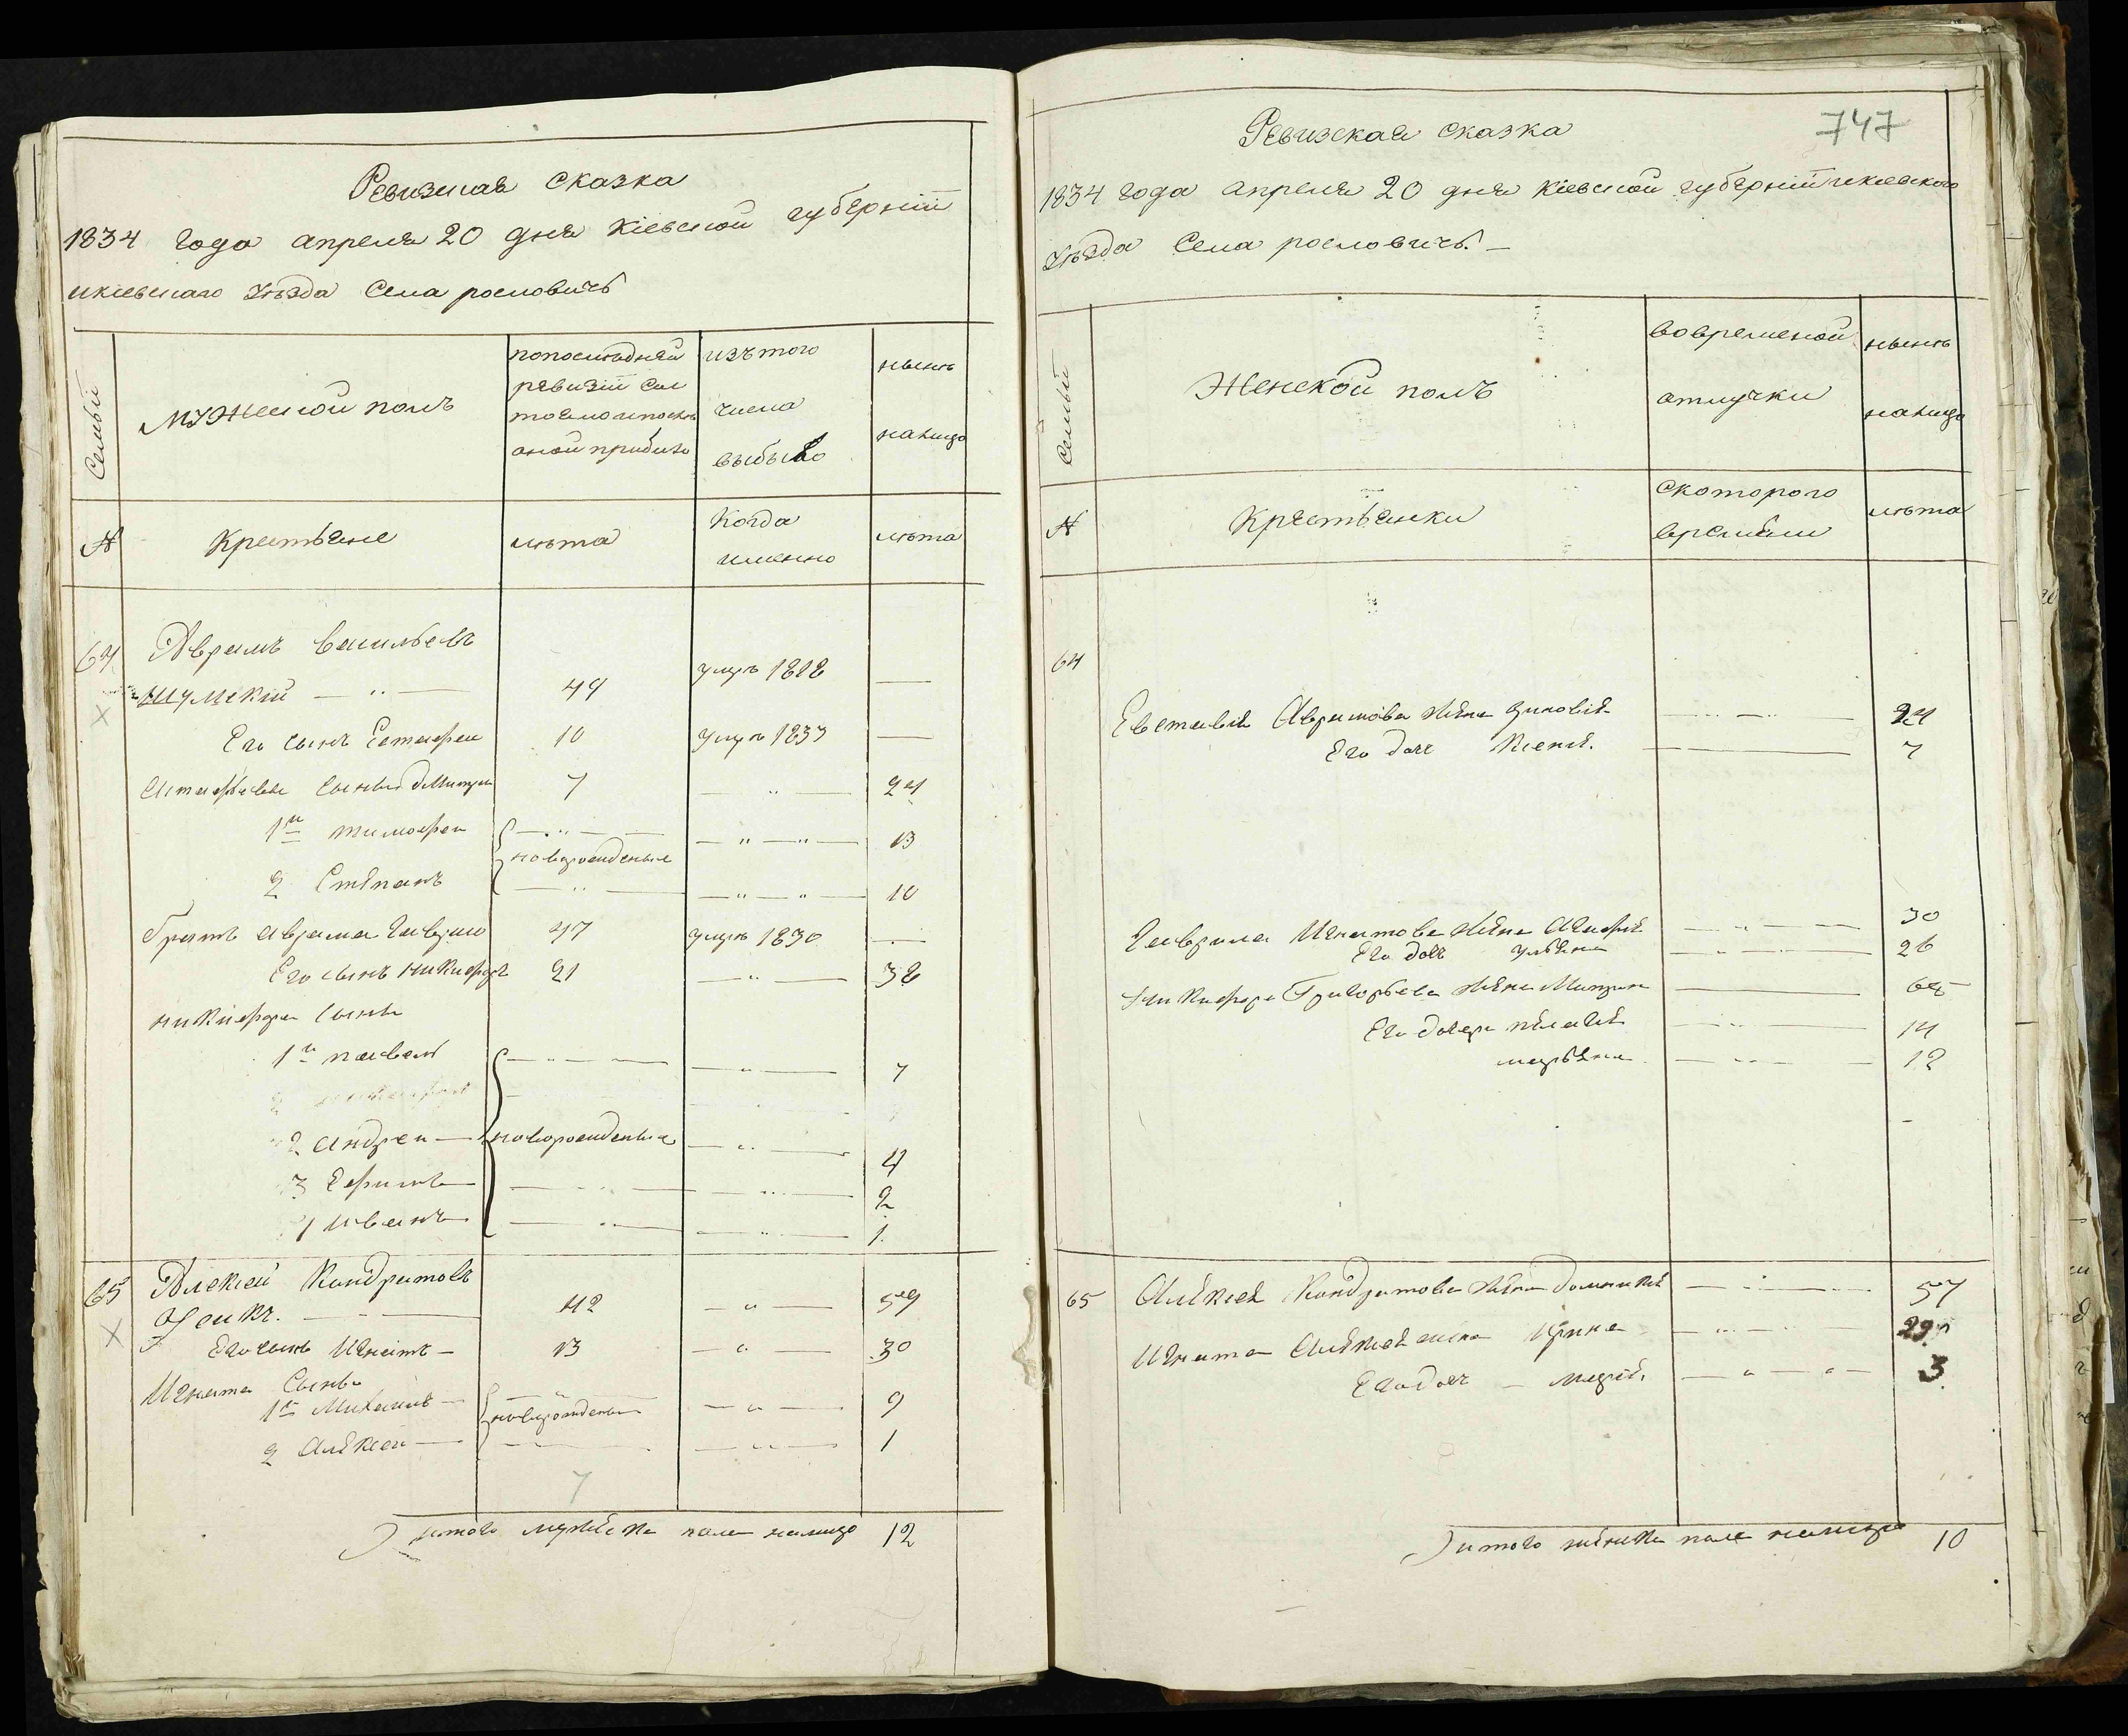 Ревизская сказка
1834 года апреля 20 дня Кіевской губерніи
икіевскаго Уѣзда Села рословичъ
Семьи
Мужеской полъ
попоследней
ревизіи сос
тояло ипослѣ
оной прибыло
изътого
числа
выбыло
нынѣ
налицо
№
Крестьяне
лѣта
Когда
именно
лѣта
64 Аврамъ васильевъ
Шумскій — „ — 49 умре 1818 —
Его сынъ Естафеи 10 умре 1833 —
Астафьевы сыны дмитри 7 — „ — 24
1й тимофеи — „ — — „ — „ — 13
новорожденые
2 Степанъ — „ — — „ — „ — 10
братъ аврама Гаврило 47 умре 1830 —
Его сынъ никифоръ 21 — „ — 38
никифора сыны
1й павелъ — „ — — „ — 7
2 андреи — новорожденые — „ — 4
3 Ефимъ — „ — — „ — 2
4 иванъ — „ — — „ — 1.
65 Алексей Кондратовъ
42 — „ — 59
Его сынъ Игнатъ — 13 — „ — 30
Игната Сынъ
1й Михаилъ — новорожденые — „ — 9
2 Алексеи — — „ — 1
7
итого мужеска пола налицо 12
747
Ревизская сказка
1834 года апреля 20 дня Кіевской губерніи икіевского
Уѣзда Села рословичъ —
Семьи
Женской полъ
вовременой
отлучки
нынѣ
налицо
№
Крестьянки
скоторого
времени
лѣта
64
Евставія Аврамова жена зиновія — „ — „ — 24
Его дочь Ксенія. — 7
Гаврила Игнатова жена Агафія — „ — 30
Его дочь ульяна — „ — 26
Никифора Григорьева жена — 65
Его дочери пелагія — „ — 14
марьяна — „ — 12
65 Алексея Кондратова жена домникія — „ — 57
Игната Алексея жена Ирина — „ — „ — 29
Его дочь — марія — „ — „ — 3
итого женска пола налицо 10